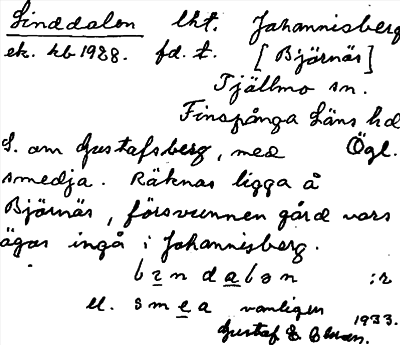 Linddalen lht. Johannisberg
ek. kb 1928. fd. t. [Björnäs]
Tjällmo sn.
Finspånga Läns hd
S. om Gustafsberg, med Ögl.
smedja. Räknas ligga å
Björnäs, försvunnen gård vars
ägor ingå i Johannisberg.
:r
el. smea vanligen
1933.
Gustaf E